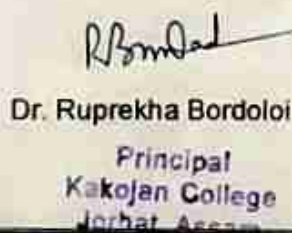 Dr. Ruprekha Bordoloi
Principal
Kakojan College
Jorhat Assam